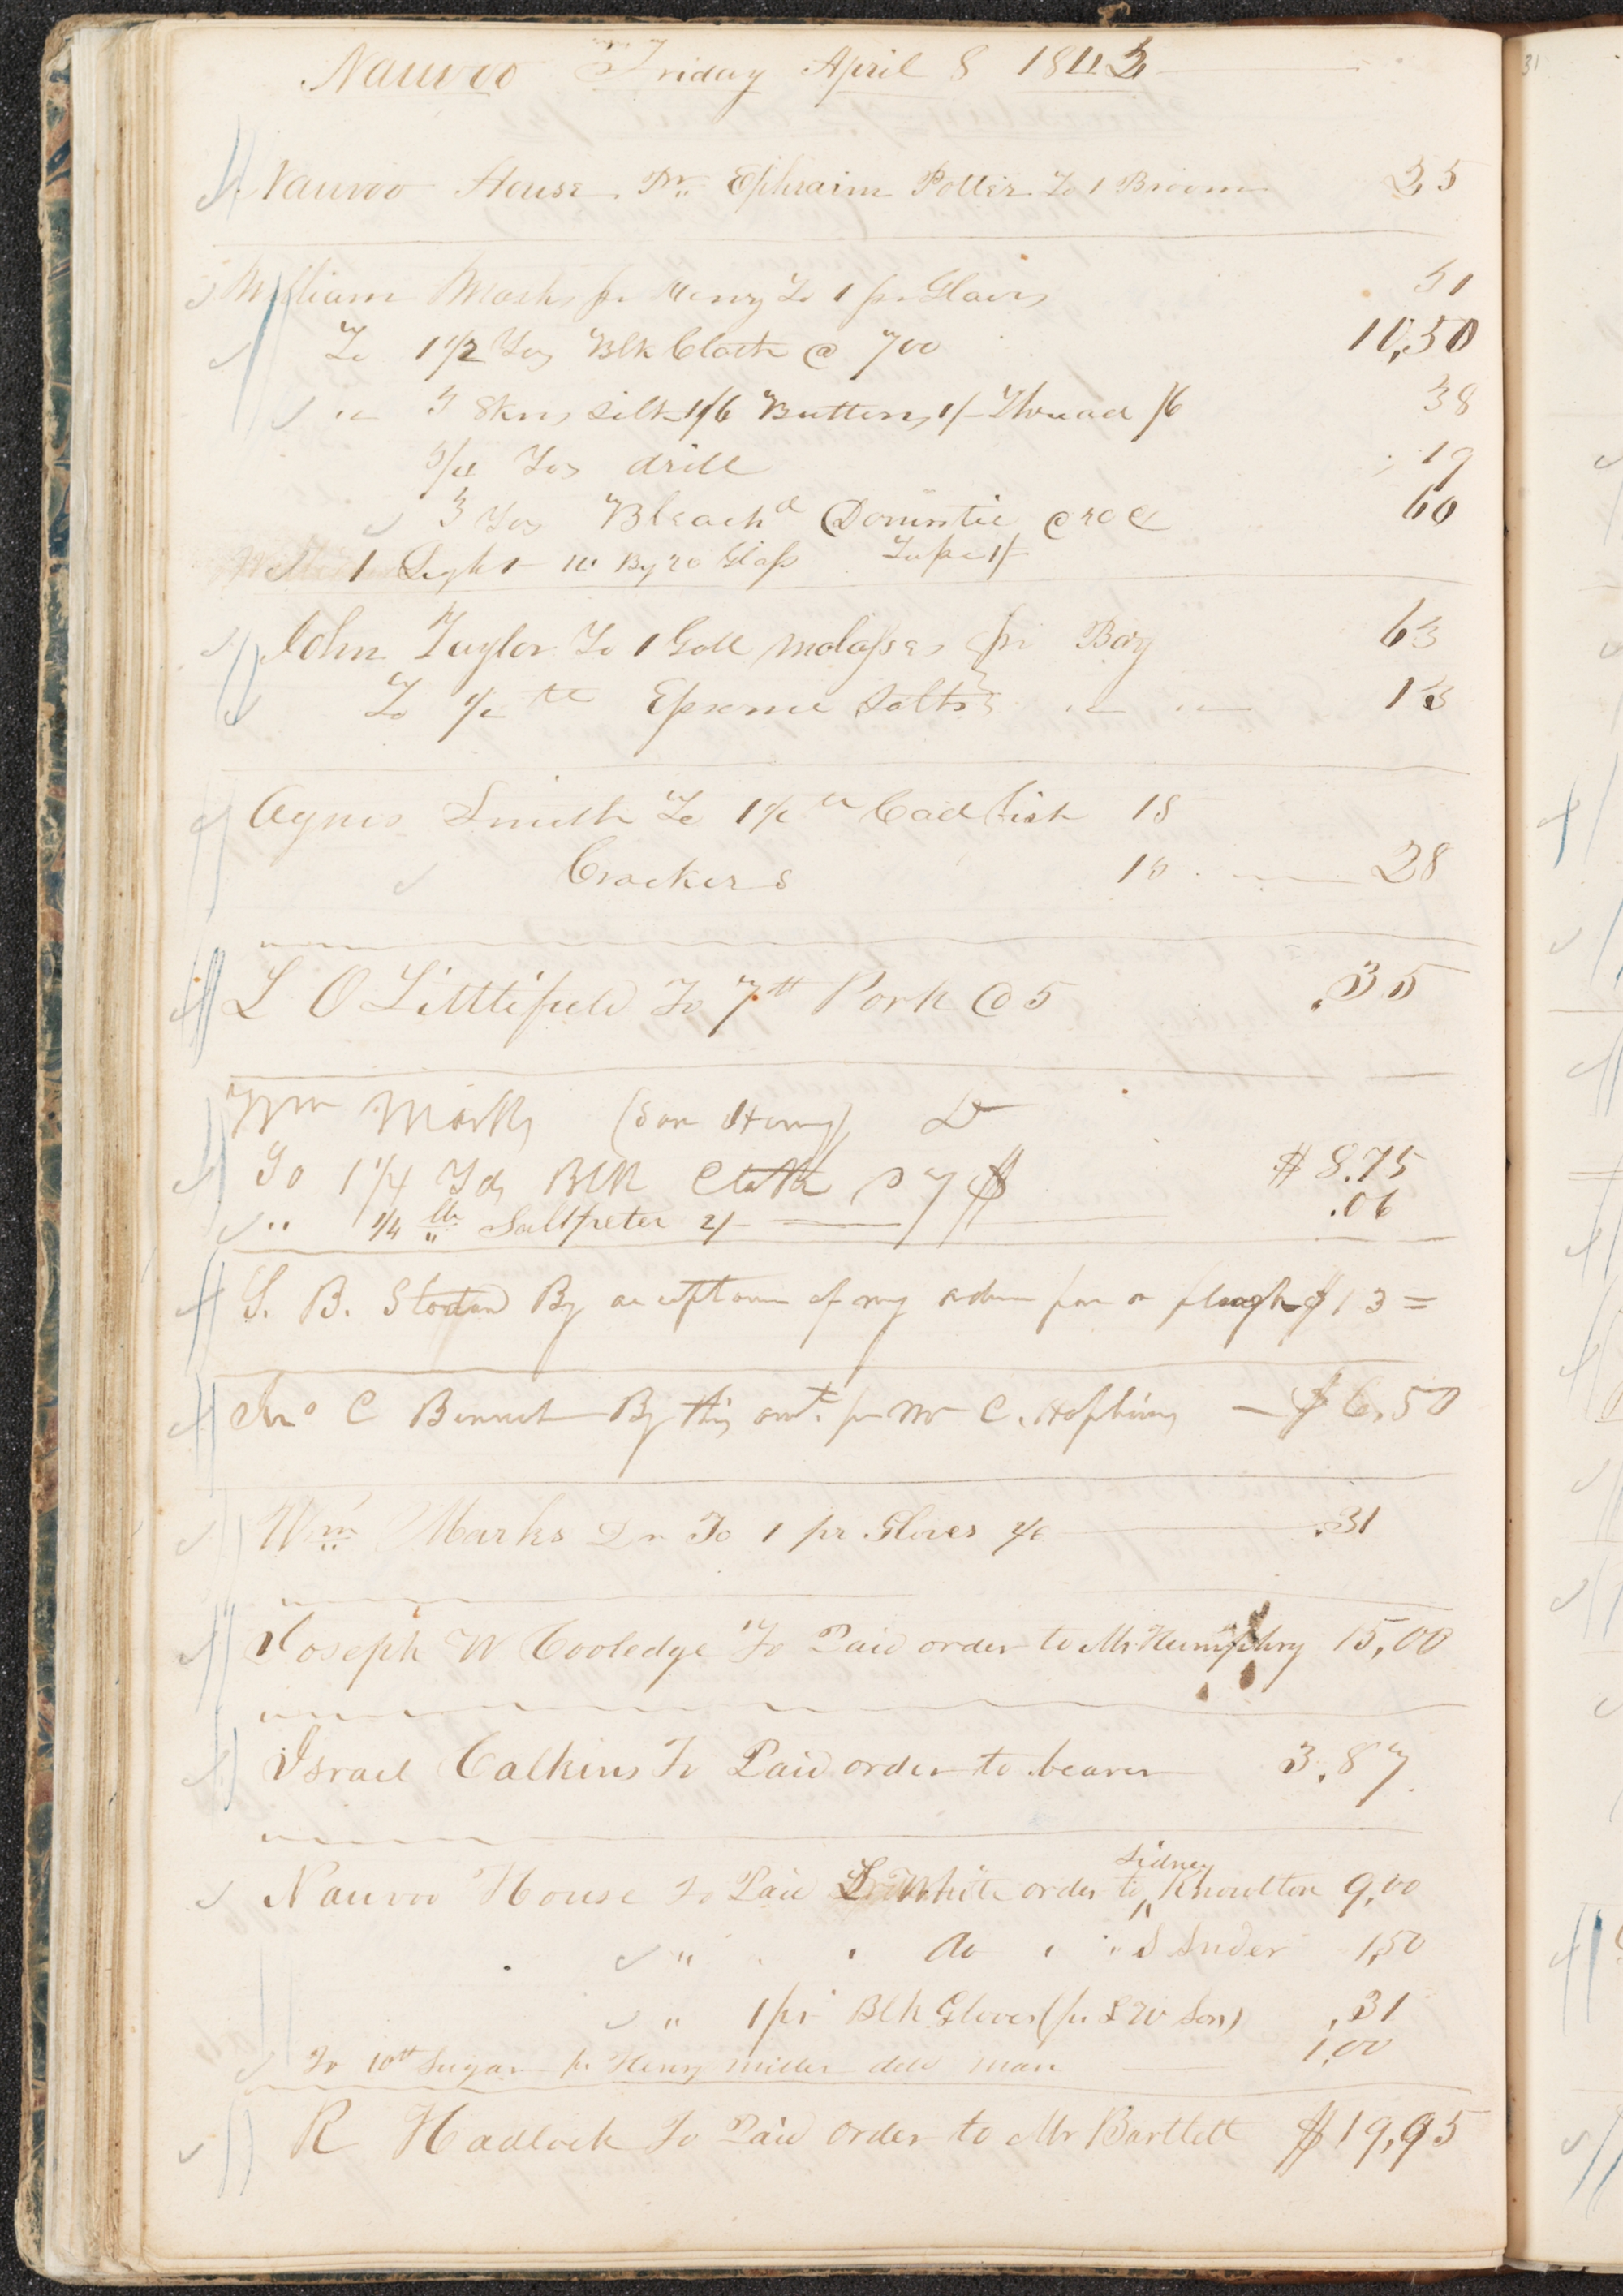 Nauvoo Friday April 8 1842
Nauvoo House Dr. Ephraim Potter To 1 Broom 25
William Marks pr Henry To 1 pr Glovs 31
To 1 1/2 Yds Blk Cloth @ 700 10,50
" 3 Skns Silk 1/6 Buttons 1/- Thread /6 38
3/4 Yds drill 19
3 Yds Bleachd Domestic @ 20 c 60
1 Light 10 By 20 Glass Tape 1/-
John Taylor To 1 Gall Molasses pr Boy 63
To 1/2 lb Epsome Salts " " 13
Agnes Smith To 1 1/2 lb Codfish 18
Crackers 10 28
L O Littlefield To 7 lb Pork @ 5 .35
Wm Marks (Son Henry) Dr
To 1 1/4 Yds Blk Cloth @ 7 $ $ 8.75
" 1/4 lb Saltpeter 2/- .06
S. B. Stoddard By acceptance of my order for a plough $13=
Jno C Bennet By this amt. pr Mr C. Hopkins $6,50
Wm Marks Dr To 1 pr Gloves 2/6 .31
Joseph W Cooledge To Paid order to Mr Humphry 15,00
Israel Calkins To Paid order to bearer 3.87
Sidney
Nauvoo House To Paid L White order to Knowlton 9,00
" " " do " " S Snider 1,50
" 1 pr Blk Gloves (pr L W Son) .31
To 10 lb Sugar pr Henry Miller deld man 1,00
R Hadlock To Paid order to Mr Bartlett $19,95
31